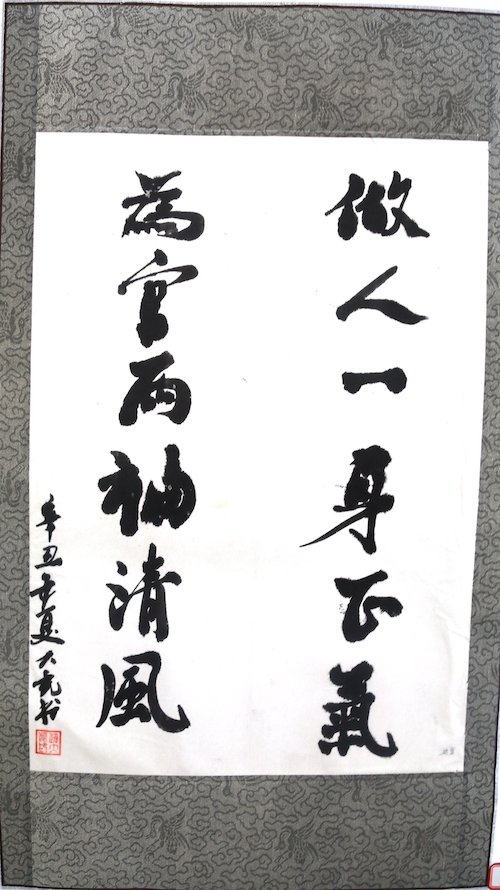 做人一身正氣
為官兩袖清風
辛丑年夏大光书